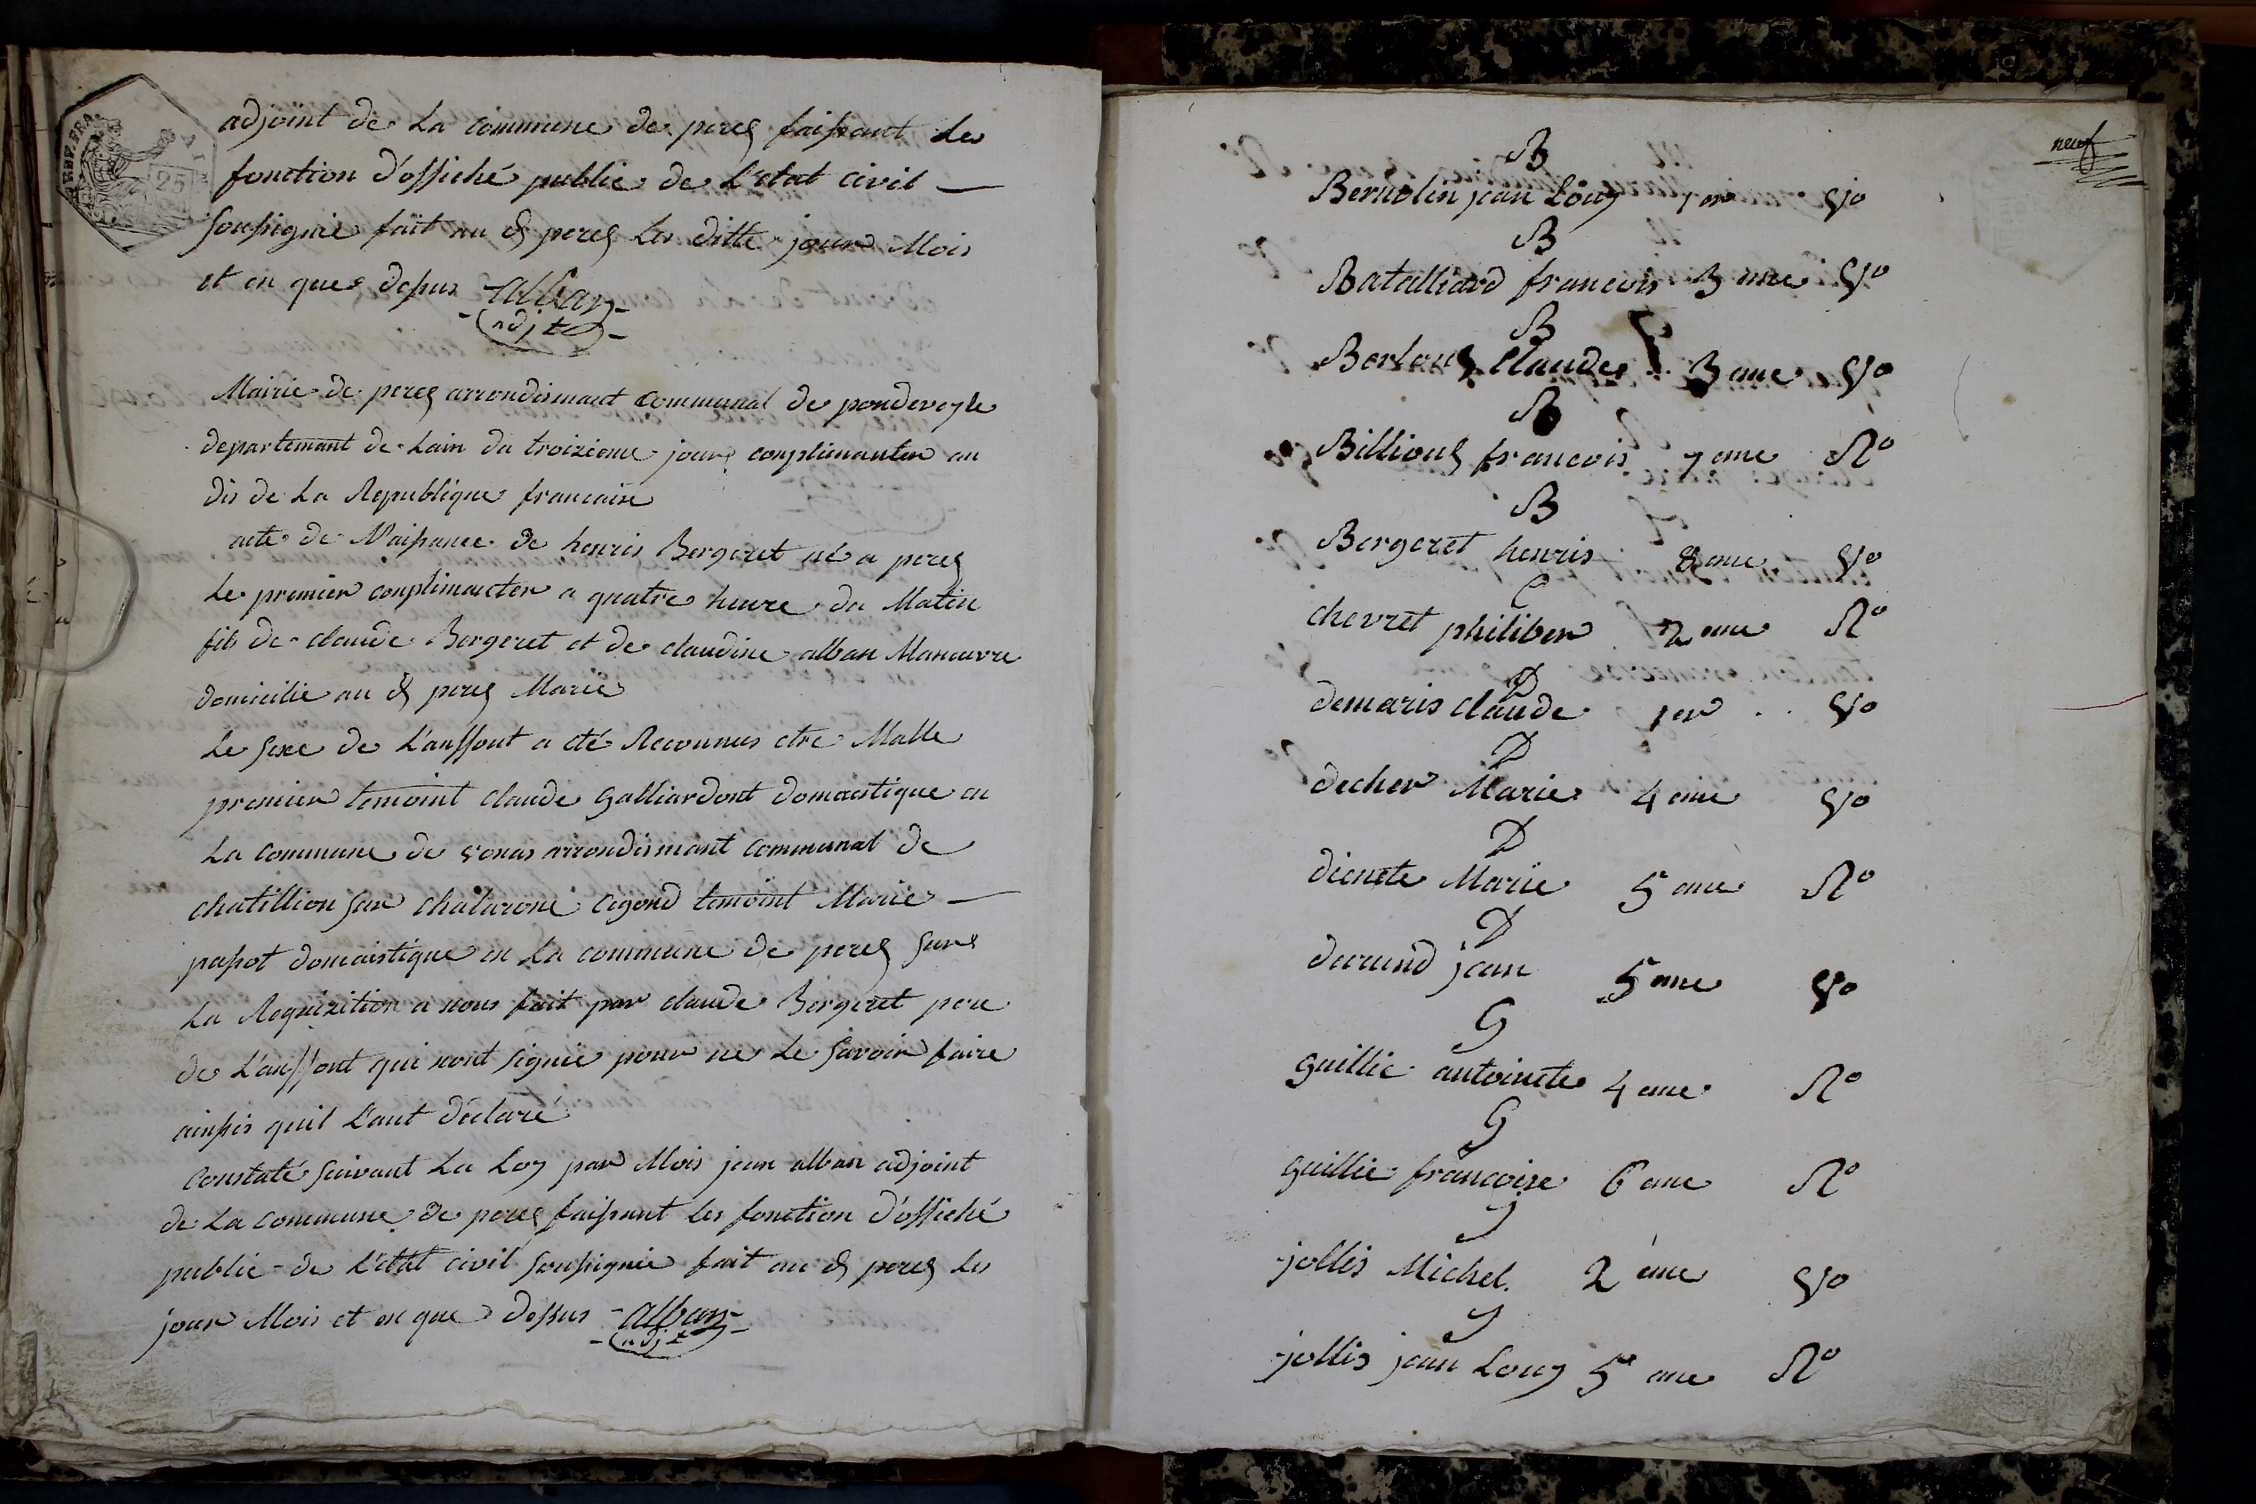 REP. FRA
25
adjoint de La commune de perez faissant les
fonction d'offiché public de L'etat civil —
soussignié fait au d perez Les ditte jour Mois
et en que dessus alban
adjt
Mairie de perez arrondismant communal de pondeveyle
departemant de Lain du troizieme jour complimanter an
dis de La Republique francaise
acte de Naissance de henris Bergeret né a perez
Le premier complimanter a quatre heure du Matin
fils de claude Bergeret et de claudine alban Manœuvre
domicilié au d perez Marié
Le sexe de L'anffont a été Reconnus etre Malle
premier temoint claude Galliardont domaistique en
La commune de vonas arrondismant communal de
chatillion sur chalarone cegond temoint Marie —
papot domaistique en La commune de perez sur
La Requizition a nous fait par claude Bergeret pere
de L'anffont qui nont signié pour ne Le savoir faire
ainssis quil L'ant déclaré
Constaté suivant La Loy par Mois jean alban adjoint
de La commune de perez faissant les fonction d'offiché
public de L'etat civil soussignié fait au d perez les
jour Mois et en que dessus alban
adjt
neuf
B
Bernolin jean Louy 1er Vo
B
Batalliard francois 3 eme Vo
B
Berlouz Claude 3 eme Vo
B
Billiouz francois 7 eme Ro
B
Bergeret henris 8 eme Vo
C
chevret philiber 2 eme Ro
D
demaris claude 1er Vo
D
decher Marie 4 eme Vo
D
dienete Marie 5 eme Ro
D
durund jean 5 eme Vo
G
guillie antoinete 4 eme Ro
G
guillie francoise 6 eme Ro
J
jollis Michel. 2 eme Vo
J
jollis jean Louy 5 eme Ro